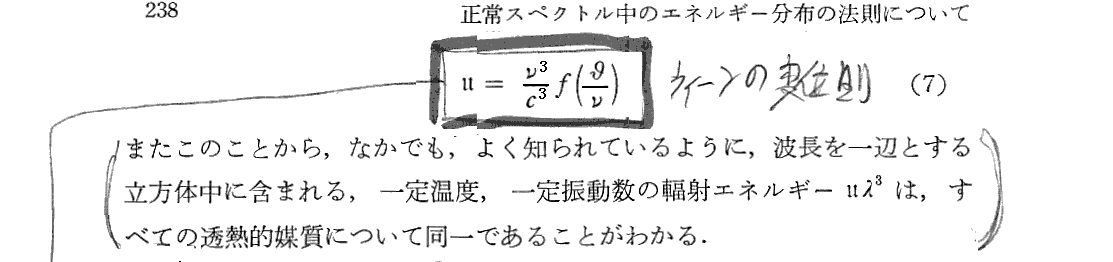 238 正常スペクトル中のエネルギー分布の法則について
u = ν³/c³ f(ϑ/ν) ウィーンの変位則 (7)
またこのことから，なかでも，よく知られているように，波長を一辺とする
立方体中に含まれる，一定温度，一定振動数の輻射エネルギー uλ³ は，す
べての透熱的媒質について同一であることがわかる．